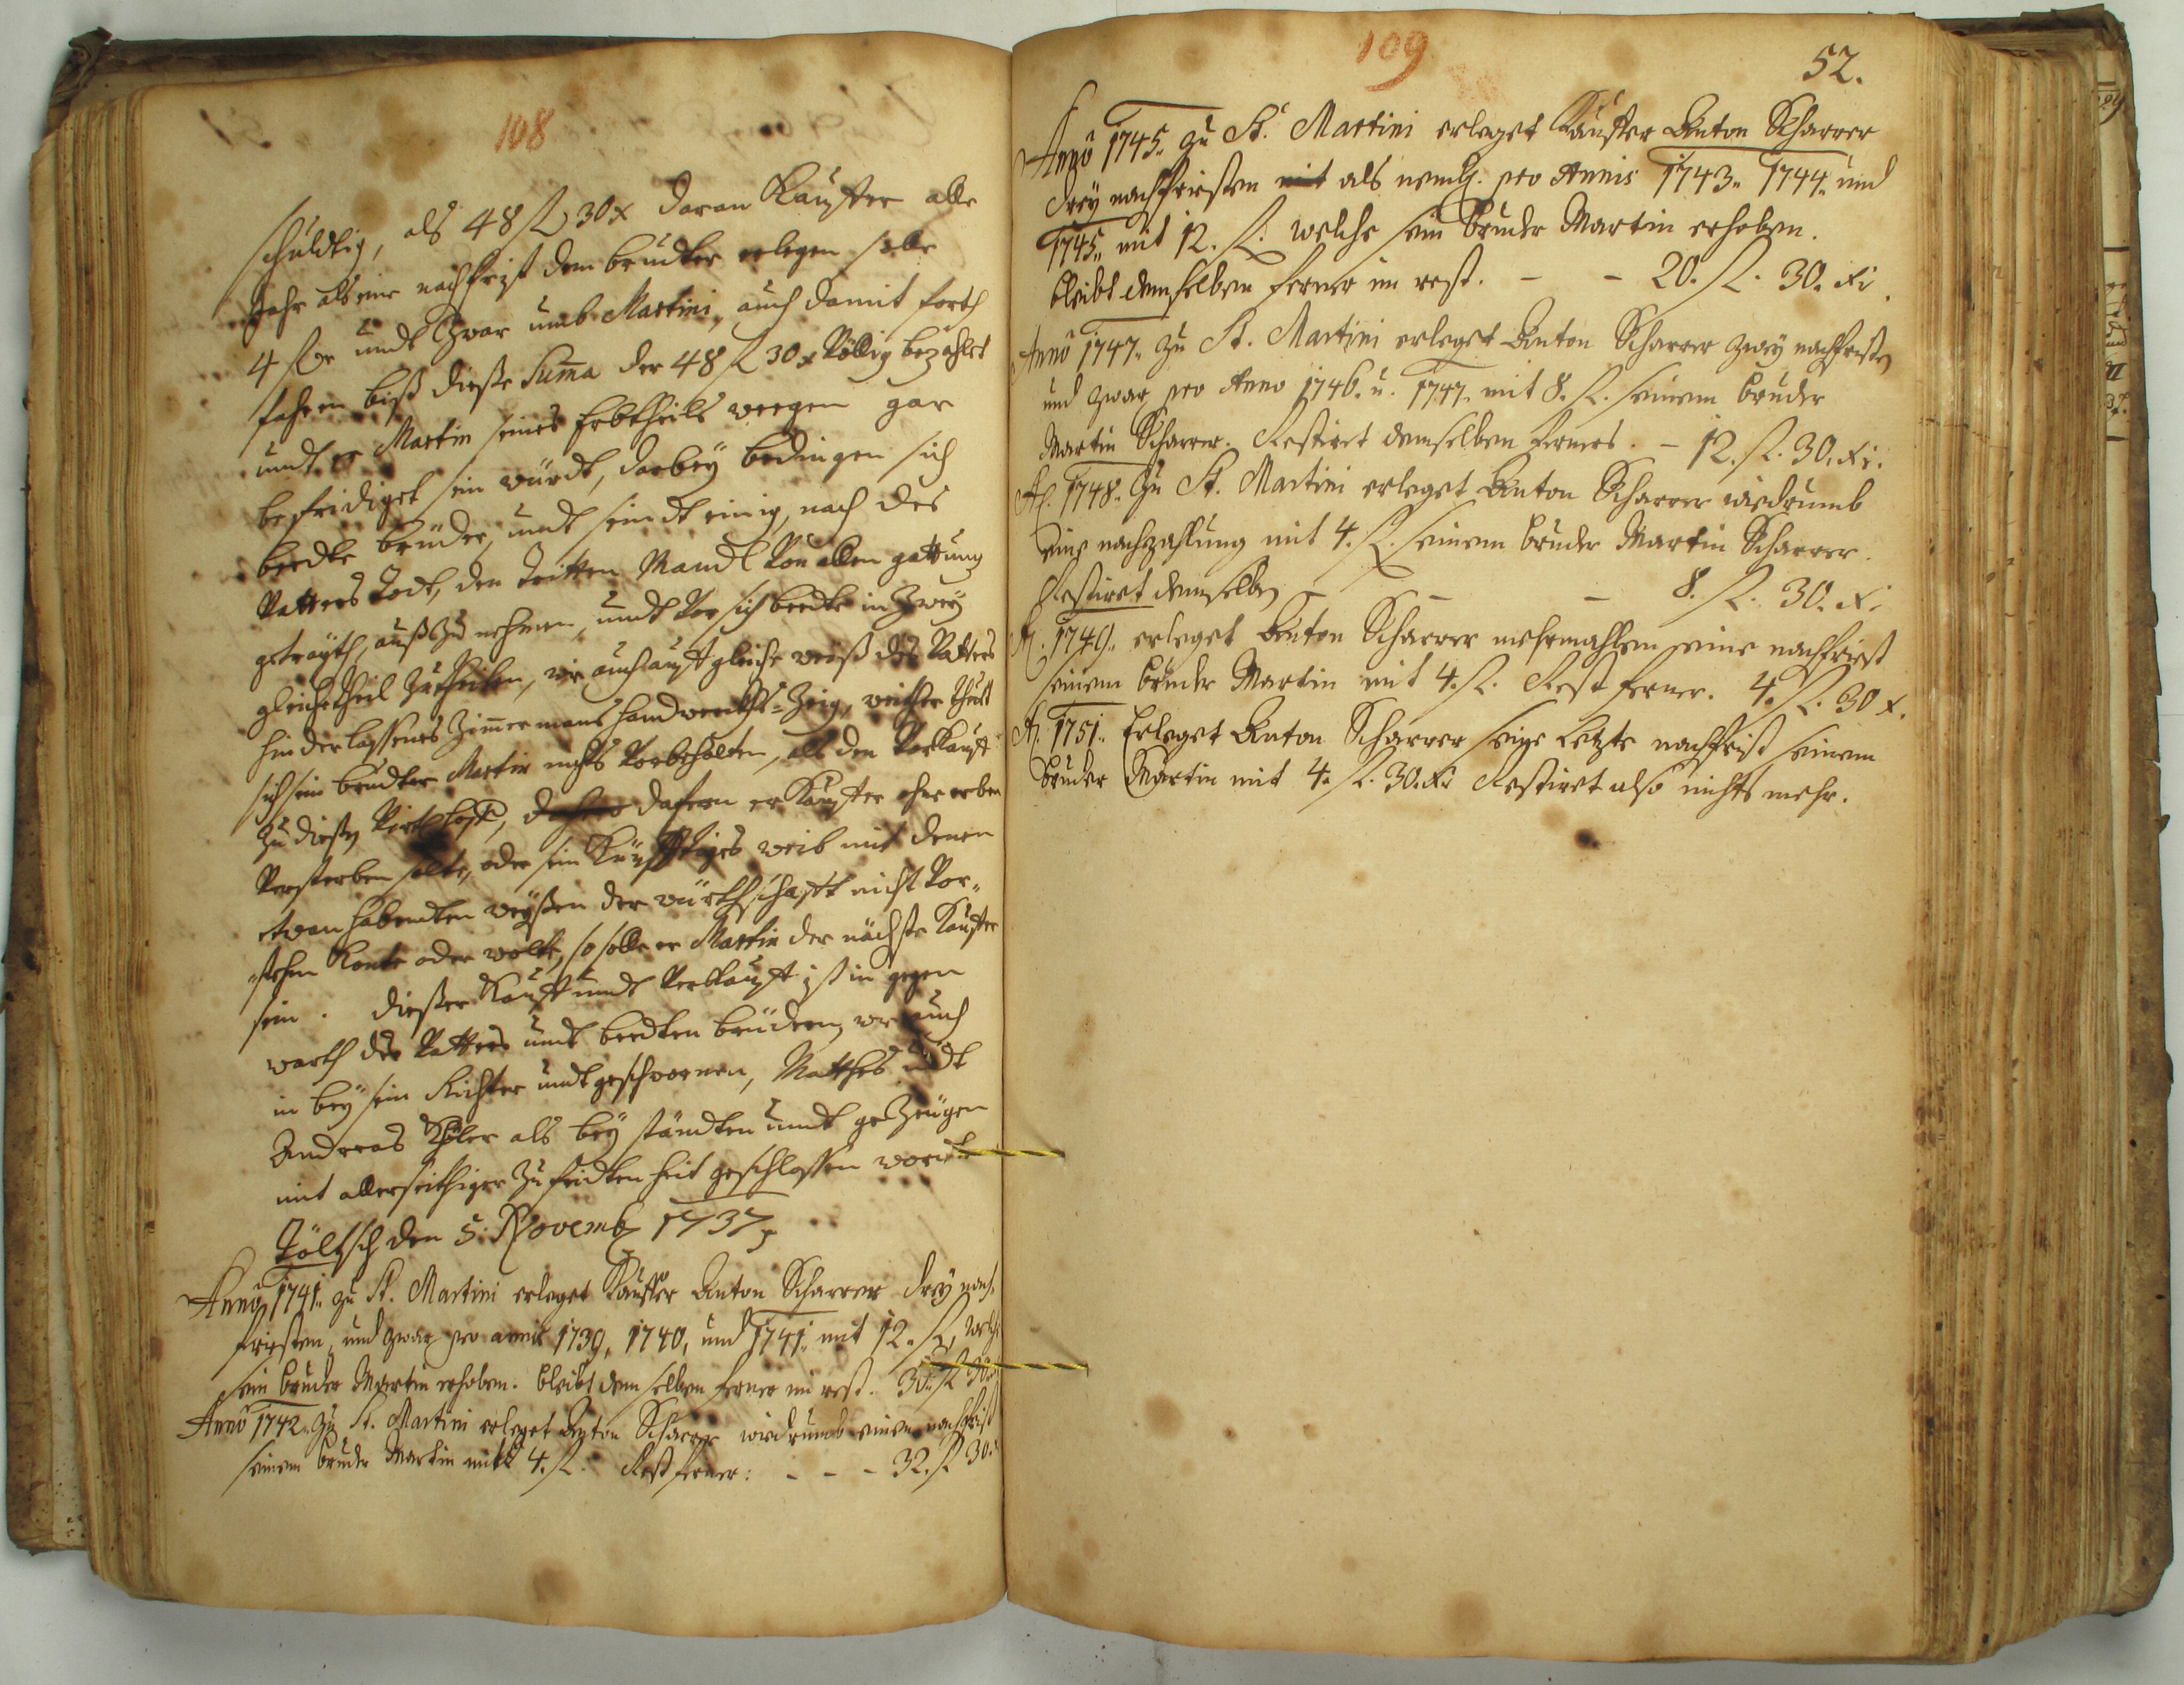 108
schuldig, als 48 fl 30 x daran Kauffer alle
Jahr als eine nachfrist dem bruder erlegen solle
4 fl undt Zwar umb Martini, auch damit forth
fahren biß dieße Suma der 48 fl 30 x Völlig bezahlet
undt er Martin seines Erbtheils weegen gar
befridiget sein würdt, darbey bedingen sich
beede brüder, undt seindt einig, nach des
Vatters Todt, den dritten Mandl Von allen gattung
getrayth auß zu nehmen, undt Vor sich beede in Zwey
gleiche theil zu theilen, wie auch auff gleiche weiß des Vatters
hinderlaßenes Zimermans handwerckhs=Zeig, weither thuet
sich sein bruder Martin nichts Vorbehalten, als den Vorkauff
zu dießer, dafern er Kauffer ohne erben
Versterben solte, oder sein Künfftiges weib mit denen
etwan habendten weyßen der würthschafft nicht Vor=
=stehen konte oder wolte, so solle er Martin der nächste Kauffer
sein. Dießer Kauff undt Verkauff ist in gegen
warth des Vatters undt beeden brüdern, wie auch
in bey sein Richter undt geschwornen, Mathes undt
Andreas als bey ständten undt gezeugen
mit allerseithiger Zufridenheit geschloßen worden
Töltsch den 5. Novemb 1737
Anno 1741. zu St. Martini erleget Kauffer Anton Scharrer drey nach=
fristen, und zwar pro annis 1739, 1740, und 1741. mit 12. fl, welche
sein bruder Martin erhoben. bleibt dem selben ferner im rest. 36. fl 30 x
Anno 1742. zu St. Martini erleget Anton Scharrer wiedrumb eine nachfrist
seinem bruder Martin mit 4. fl. Rest ferner: - - - 32. fl 30. x
109
52.
Anno 1745. zu St. Martini erleget Kauffer Anton Scharrer
drey nachfristen mit als neml. pro Annis 1743. 1744. und
1745. mit 12. fl. welche sein bruder Martin erhoben.
bleibt demselben ferner im rest. - - 20. fl. 30. xr.
Anno 1747. zu St. Martini erleget Anton Scharrer zwey nachfristen
und zwar pro Anno 1746. u. 1747. mit 8. fl. seinem bruder
Martin Scharrer. Restiret demselben ferners. - 12. fl. 30. xr.
Ao. 1748. zu St. Martini erleget Anton Scharrer wiedrumb
eine nachzahlung mit 4. fl. seinem bruder Martin Scharrer.
Restiret demselben - - - 8. fl. 30. x.
Ao. 1749. erleget Anton Scharrer mehrmahlen eine nachfrist
seinem bruder Martin mit 4. fl. Rest ferner. 4. fl. 30 x.
Ao. 1751. Erleget Anton Scharrer seine Letzte nachfrist seinem
bruder Martin mit 4. fl. 30. xr Restiret also nichts mehr.